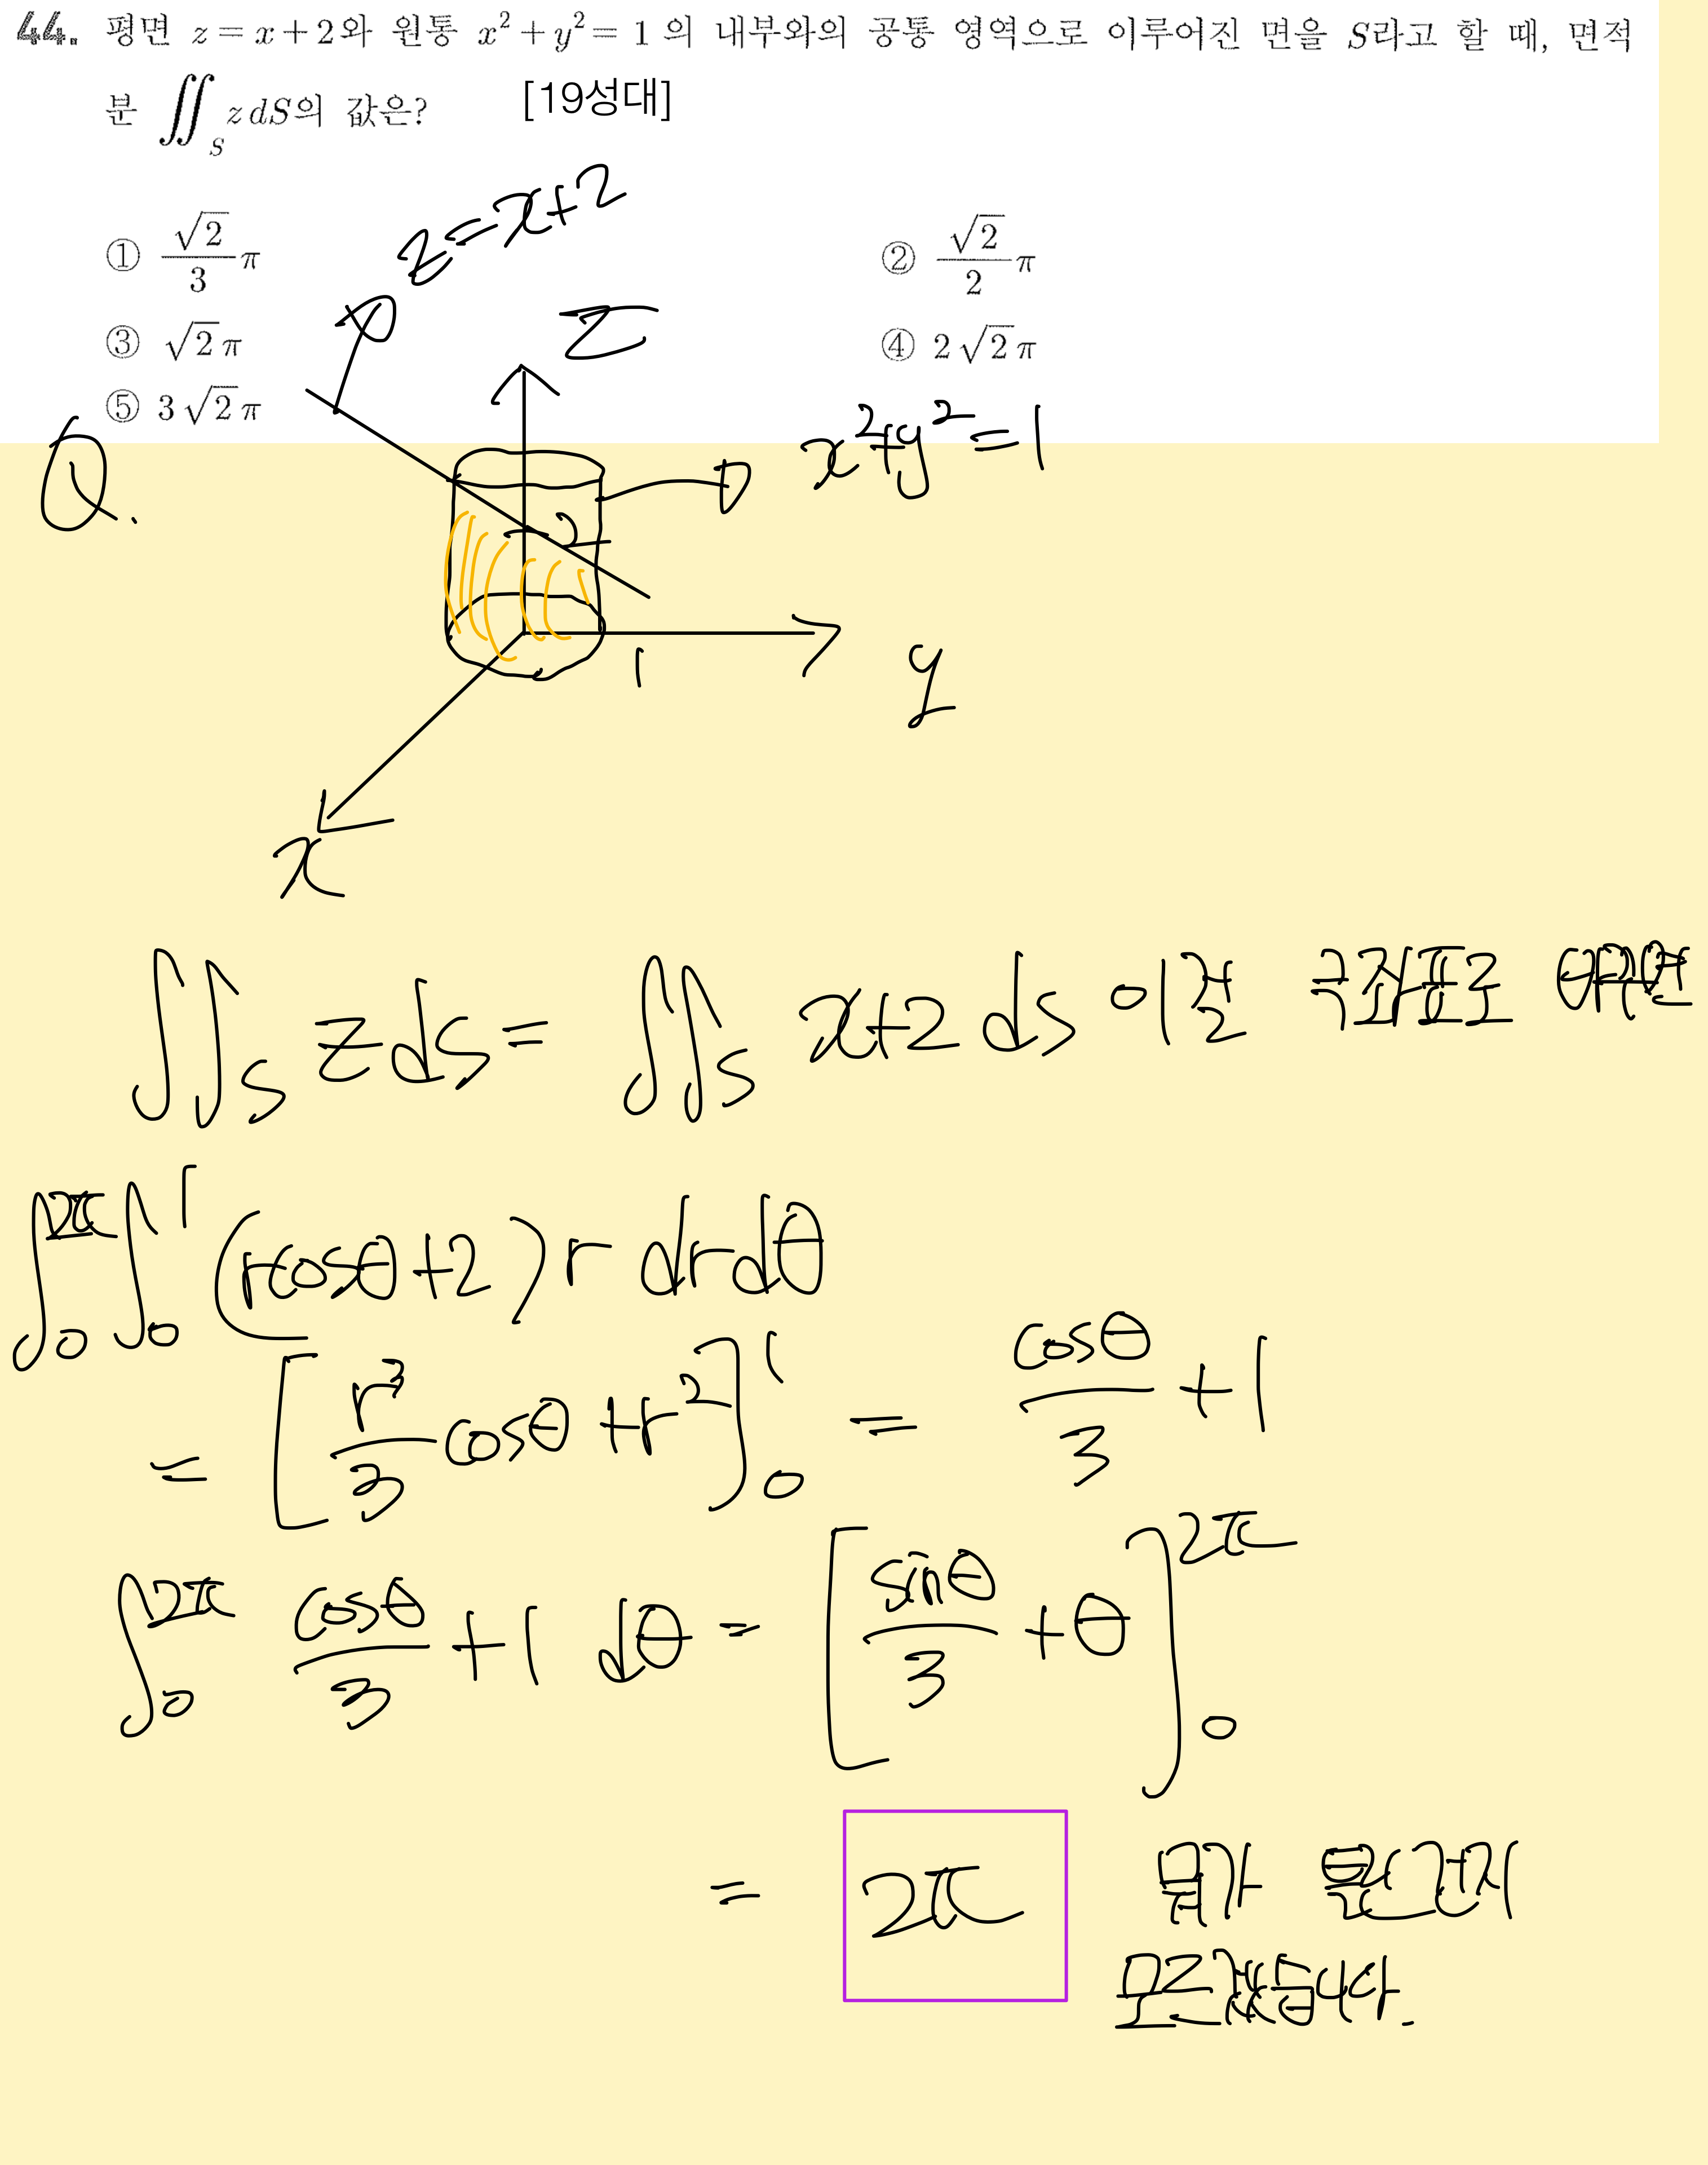 44. 평면 z = x + 2와 원통 x² + y² = 1 의 내부와의 공통 영역으로 이루어진 면을 S라고 할 때, 면적
분 ∬_S z dS의 값은? [19성대]
① √2/3 π ② √2/2 π
③ √2 π ④ 2√2 π
⑤ 3√2 π
z=x+2
z
Q.
x²+y²=1
2
1
y
x
∬_S z ds = ∬_S x+2 ds 이걸 극좌표로
∫_0^2π ∫_0^1 (rcosθ+2) r drdθ
= [r³/3 cosθ + r²]_0^1 = cosθ/3 + 1
∫_0^2π cosθ/3 + 1 dθ = [sinθ/3 + θ]_0^2π
= 2π 뭐가 문젠건지
모르겠습니다.